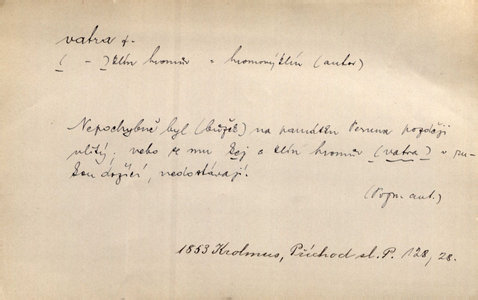 vatra f.
( - ) klín hromův = hromový klín (autor)
Nepochybně byl (bůžek) na památku Peruna později
ulitý, nebo mu a klín hromův (vatra) v
držící, nedostávají.
(Pozn. aut.)
1853 Krolmus, Příchod sl. P. 128, 28.